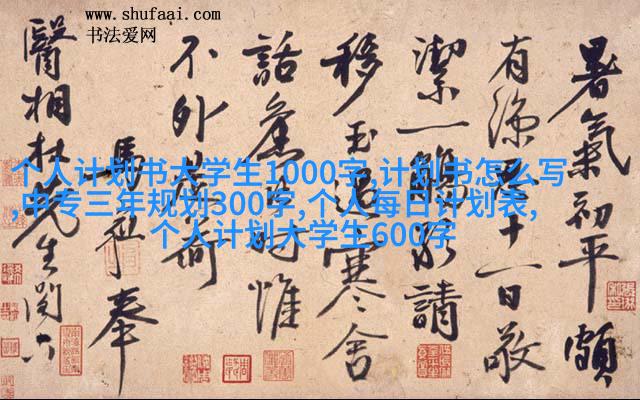 www.shufaai.com
书法爱网
个人计划书大学生1000字,计划书怎么写
,中专三年规划300字,个人每日计划表,
个人计划大学生600字
暑氣初平頗
有涼十一日敬
潔一觴請
移玉過寒舍
話舊惟
不外是荷
馬奉
醫相林先生閣下